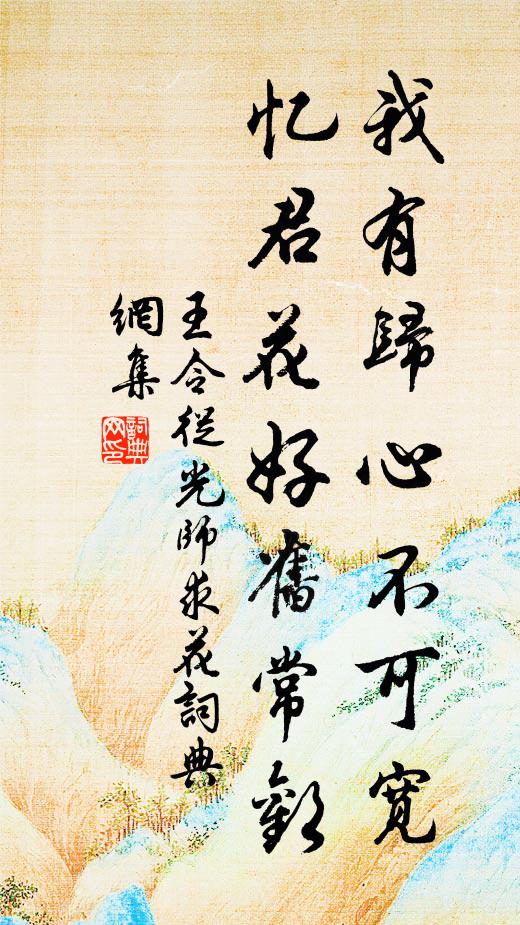 我有歸心不可寬
忆君花好舊常觀
王令從光師求花詞典
網集
詞典
网印